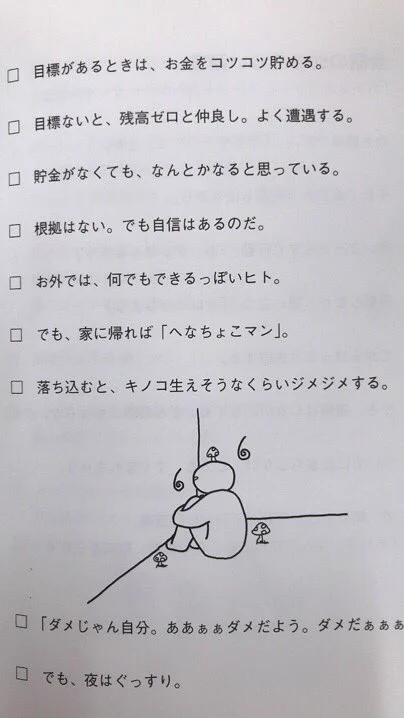 □ 目標があるときは、お金をコツコツ貯める。
□ 目標ないと、残高ゼロと仲良し。よく遭遇する。
□ 貯金がなくても、なんとかなると思っている。
□ 根拠はない。でも自信はあるのだ。
□ お外では、何でもできるっぽいヒト。
□ でも、家に帰れば「へなちょこマン」。
□ 落ち込むと、キノコ生えそうなくらいジメジメする。
□ 「ダメじゃん自分。ああぁぁダメだよう。ダメだぁぁぁ
□ でも、夜はぐっすり。